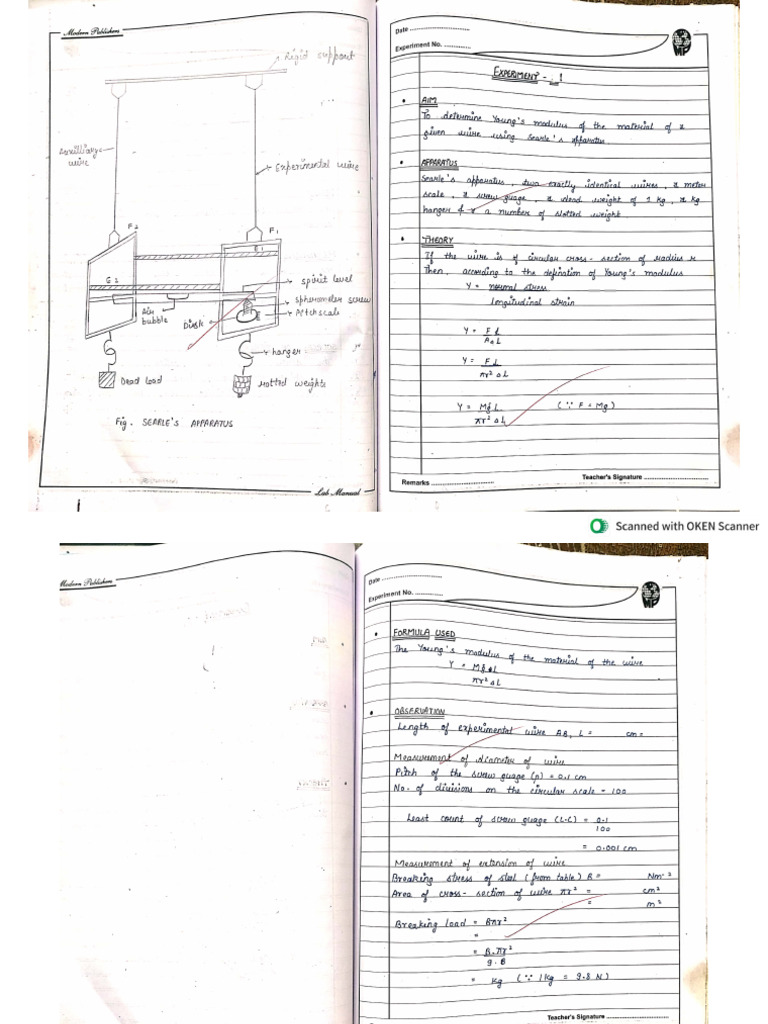 Modern Publishers
Rigid support
Auxilliary
wire
Experimental wire
F2
F1
E1
E2
spirit level
Spherometer screw
Pitch scale
Air
bubble
Disk
hanger
Dead load
slotted weights
Fig. SEARLE'S APPARATUS
Lab Manual
Date
Experiment No.
MP
EXPERIMENT - 1
AIM
To determine Young's modulus of the material of a
given wire using Searle's apparatus
APPARATUS
Searle's apparatus, two exactly identical wires, a meter
scale, a screw guage, a dead weight of 1 kg, a kg
hanger & a number of slotted weight
THEORY
If the wire is of circular cross-section of radius r
Then, according to the defination of Young's modulus
Y = normal stress
longitudinal strain
Y = FL
A ΔL
Y = FL
πr² ΔL
Y = MgL (∵ F = Mg)
πr² ΔL
Remarks
Teacher's Signature
Scanned with OKEN Scanner
Modern Publishers
Date
Experiment No.
MP
FORMULA USED
The Young's modulus of the material of the wire
Y = MgL
πr² ΔL
OBSERVATION
Length of experimental wire AB, L = cm =
Measurement of diameter of wire
Pitch of the screw guage (p) = 0.1 cm
No. of divisions on the circular scale = 100
Least count of screw guage (L.C) = 0.1
100
= 0.001 cm
Measurement of extension of wire
Breaking stress of steel (from table) B = Nm-2
Area of cross-section of wire πr² = cm²
= m²
Breaking load = Bπr²
=
= B.πr²
9.8
= kg (∵ 1kg = 9.8 N)
Teacher's Signature